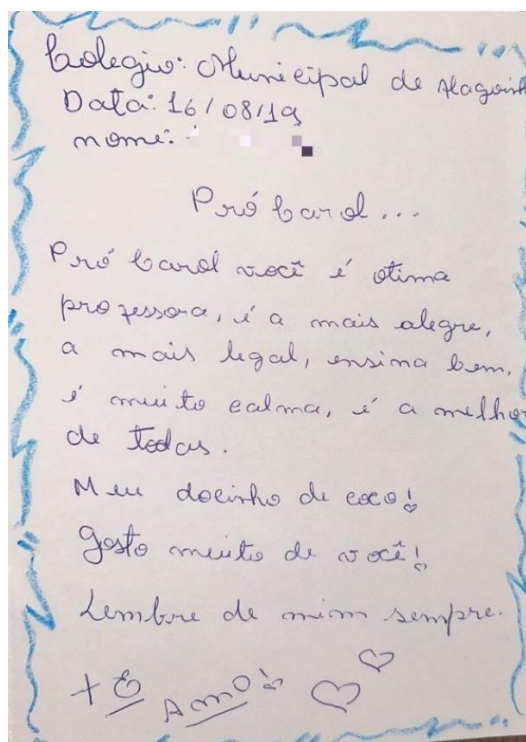 Colegio: Municipal de Alagoinh
Data: 16/08/19
nome:
Pró Carol...
Pró Carol você é otima
professora, é a mais alegre,
a mais legal, ensina bem,
é muito calma, é a melhor
de todas.
Meu docinho de coco!
Gosto muito de você!
Lembre de mim sempre.
+ E AMO!